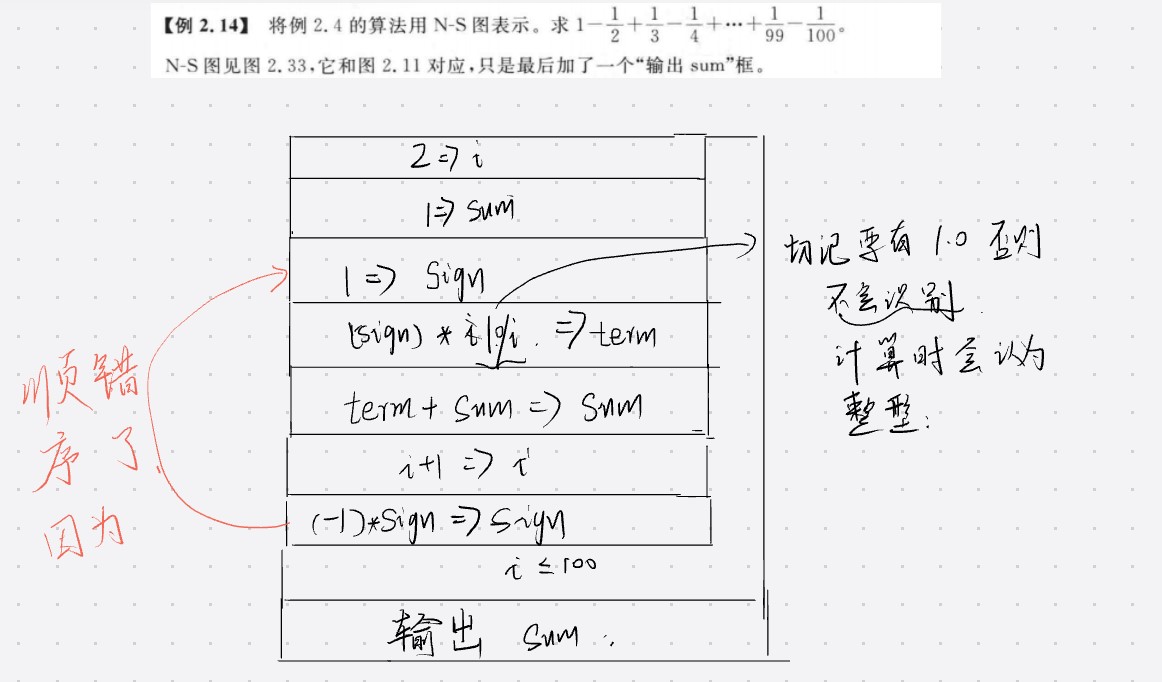 【例 2.14】 将例 2.4 的算法用 N-S 图表示。求 1-1/2+1/3-1/4+…+1/99-1/100。
N-S 图见图 2.33,它和图 2.11 对应,只是最后加了一个“输出 sum”框。
2=>i
1=>sum
1=>Sign
(sign) * 1.0/i. => term
term + sum => Sum
i+1 => i
(-1)*Sign => Sign
i ≤ 100
输出 sum.
切记要有 1.0 否则
不会识别.
计算时会认为
整型.
顺错
序了
因为